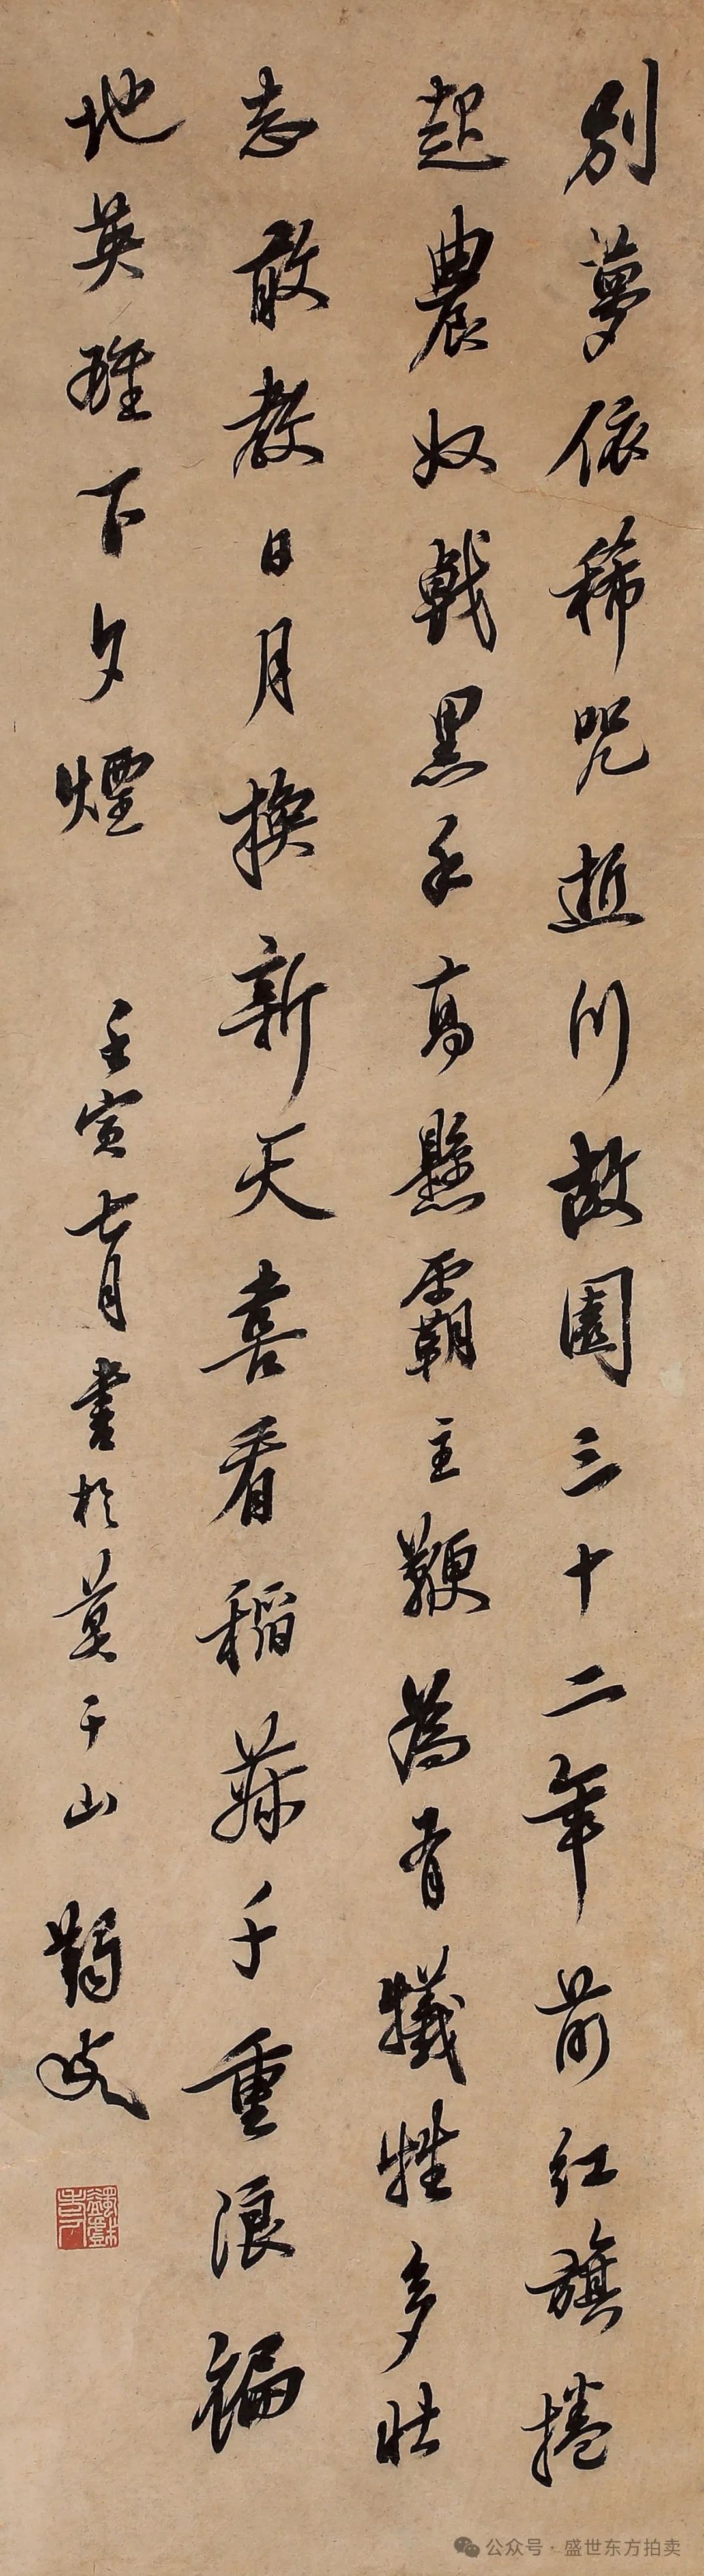 别夢依稀咒逝川故園三十二年前红旗捲
起農奴戟黑手高懸霸主鞭為有犧牲多壮
志敢教日月换新天喜看稻菽千重浪徧
地英雄下夕煙 壬寅七月書於莫干山 蠲叟
公众号 · 盛世东方拍卖